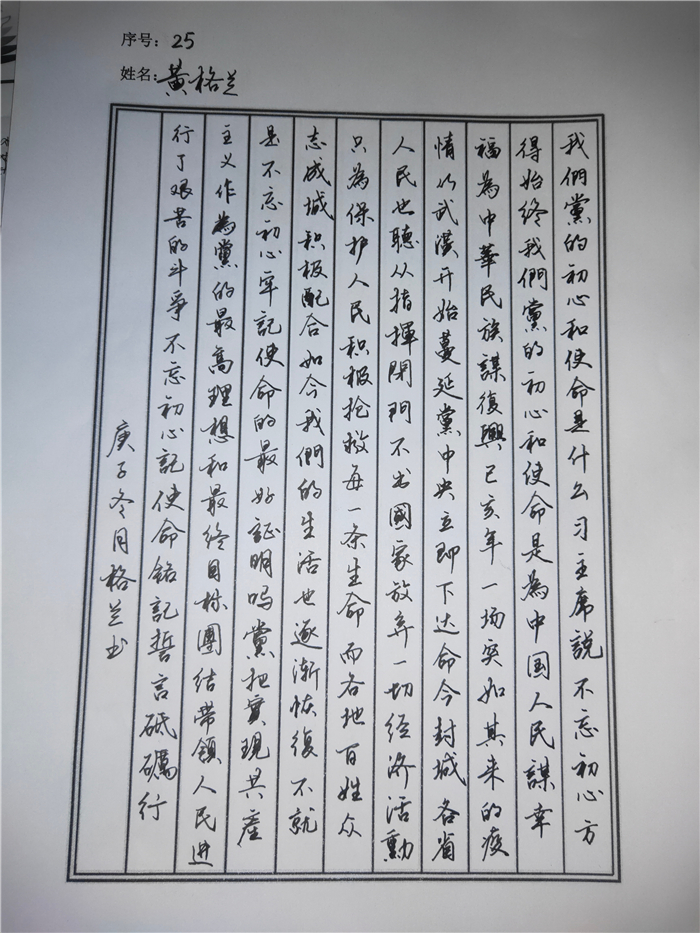 序号：25
姓名：黃格兰
我們黨的初心和使命是什么习主席説不忘初心方
得始终我們黨的初心和使命是為中国人民謀幸
福為中華民族謀復興己亥年一场突如其来的疫
情从武漢开始蔓延黨中央立即下达命令封城各省
人民也聽从指揮閉門不出國家放弃一切经济活動
只為保护人民积极抢救每一条生命而各地百姓众
志成城积极配合如今我們的生活也逐渐恢復不就
是不忘初心牢記使命的最好证明吗黨把實現共產
主义作為黨的最高理想和最终目标團结带領人民进
行了艰苦的斗爭不忘初心記使命銘記誓言砥礪行
庚子冬月格兰书